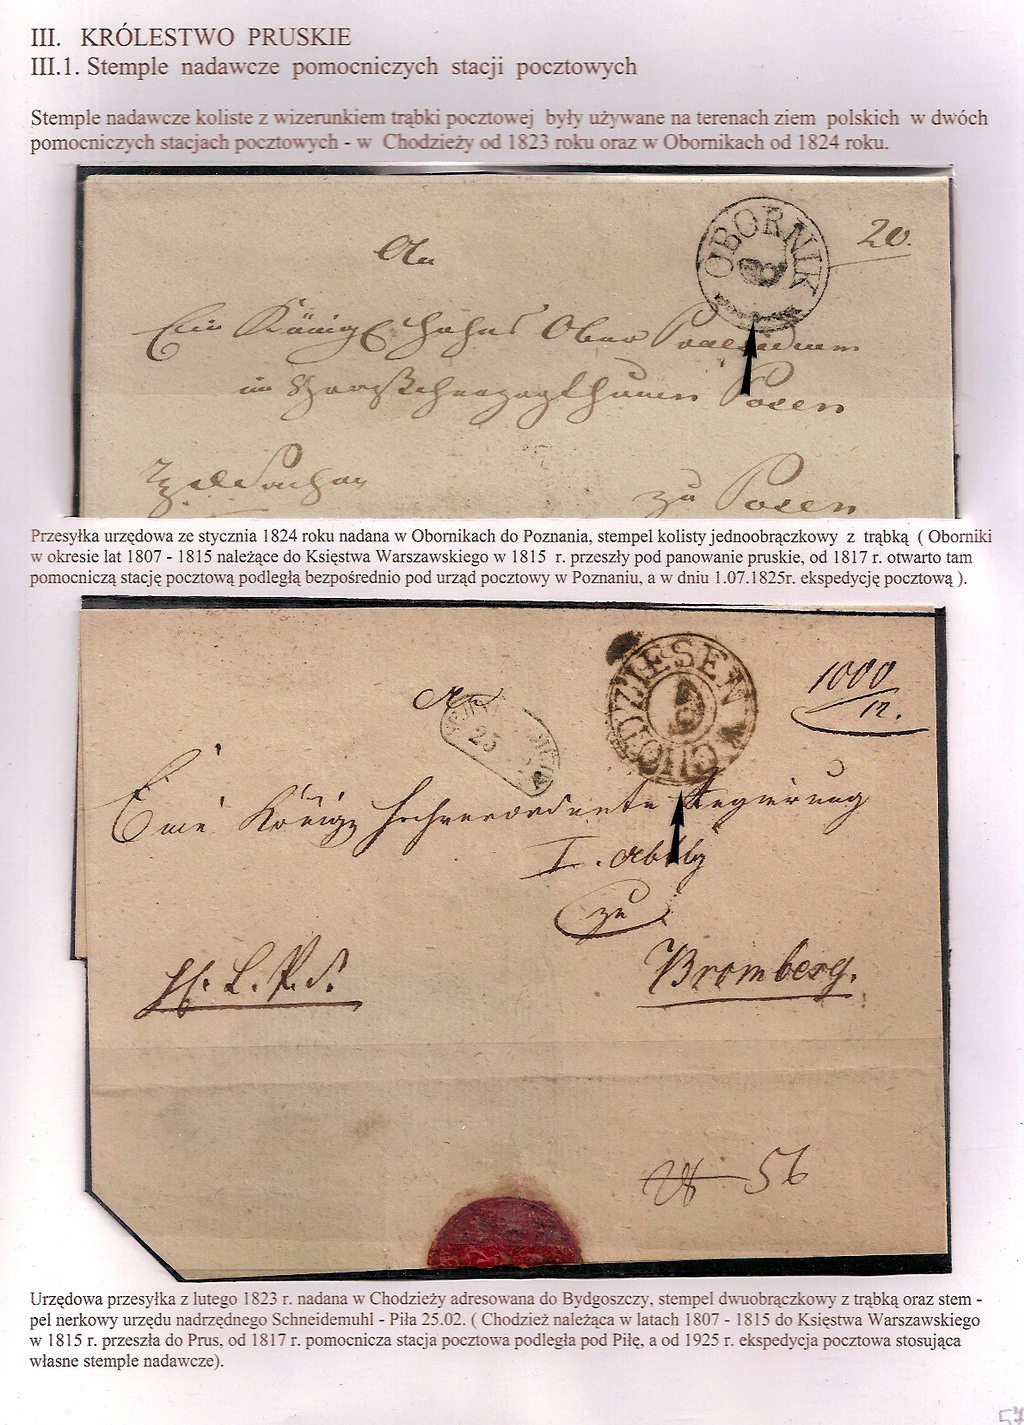 III. KRÓLESTWO PRUSKIE
III.1. Stemple nadawcze pomocniczych stacji pocztowych
Stemple nadawcze koliste z wizerunkiem trąbki pocztowej były używane na terenach ziem polskich w dwóch
pomocniczych stacjach pocztowych - w Chodzieży od 1823 roku oraz w Obornikach od 1824 roku.
OBORNIK
20.
An
Ein Königl
Ober Praesidium
im Posen
zu Posen
Przesyłka urzędowa ze stycznia 1824 roku nadana w Obornikach do Poznania, stempel kolisty jednoobrączkowy z trąbką ( Oborniki
w okresie lat 1807 - 1815 należące do Księstwa Warszawskiego w 1815 r. przeszły pod panowanie pruskie, od 1817 r. otwarto tam
pomocniczą stację pocztową podległą bezpośrednio pod urząd pocztowy w Poznaniu, a w dniu 1.07.1825r. ekspedycję pocztową ).
CHODZIESEN
1000
12.
An
25
Eine Königl Hochverordnete Regierung
I. Abthlg
zu
Bromberg.
56
Urzędowa przesyłka z lutego 1823 r. nadana w Chodzieży adresowana do Bydgoszczy, stempel dwuobrączkowy z trąbką oraz stem -
pel nerkowy urzędu nadrzędnego Schneidemuhl - Piła 25.02. ( Chodzież należąca w latach 1807 - 1815 do Księstwa Warszawskiego
w 1815 r. przeszła do Prus, od 1817 r. pomocnicza stacja pocztowa podległa pod Piłę, a od 1925 r. ekspedycja pocztowa stosująca
własne stemple nadawcze).